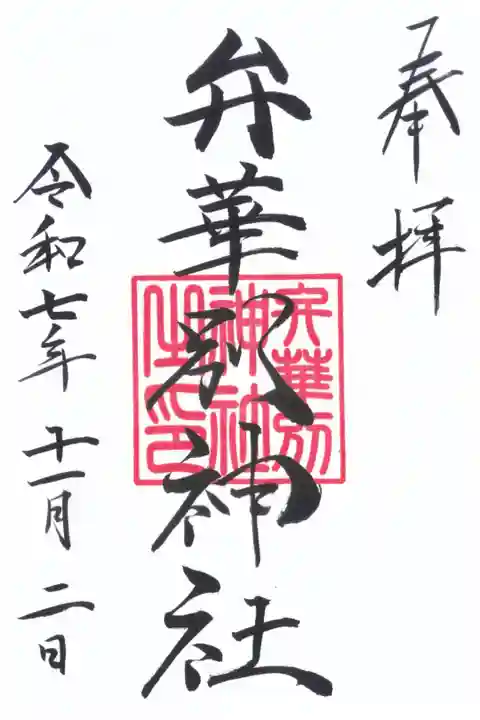 奉拝
弁華別神社
弁華別
神社
之印
令和七年十一月二日